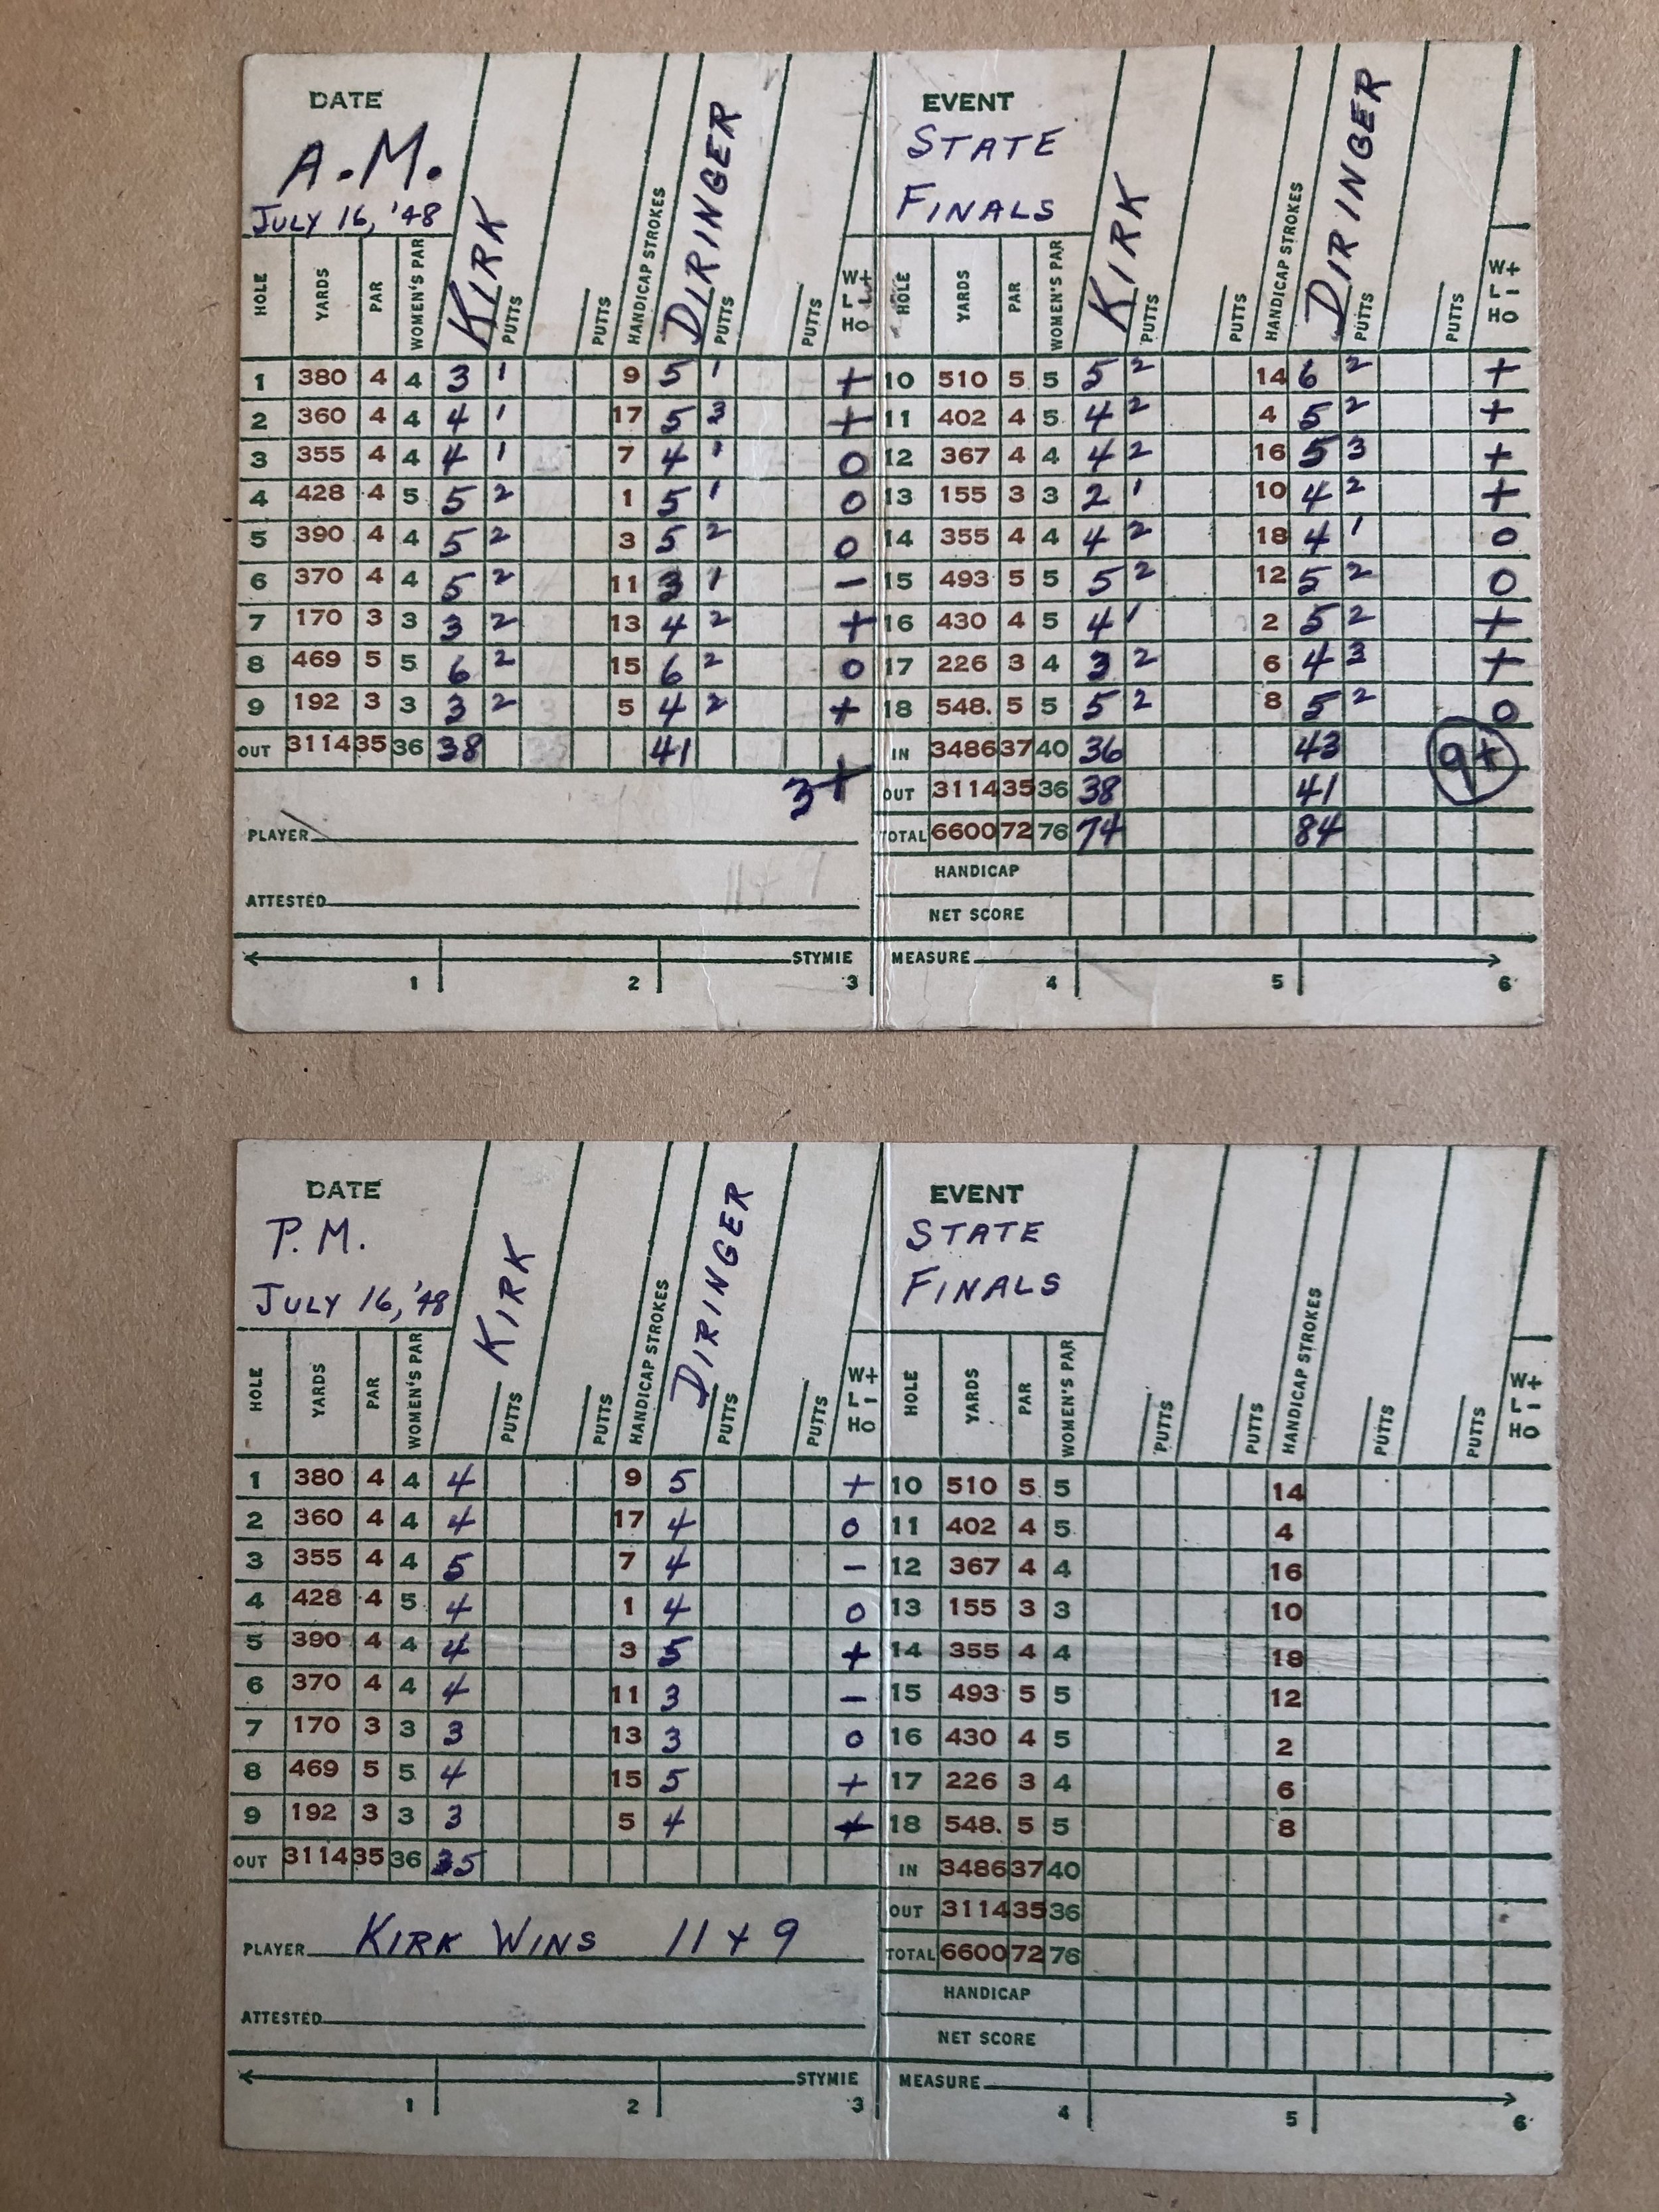 DATE
A.M.
JULY 16, '48
HOLE YARDS PAR WOMEN'S PAR KIRK PUTTS PUTTS HANDICAP STROKES DIRINGER PUTTS PUTTS W+ L- HO
1 380 4 4 3 1 9 5 1 +
2 360 4 4 4 1 17 5 3 +
3 355 4 4 4 1 7 4 1 0
4 428 4 5 5 2 1 5 1 0
5 390 4 4 5 2 3 5 2 0
6 370 4 4 5 2 11 3 1 -
7 170 3 3 3 2 13 4 2 +
8 469 5 5 6 2 15 6 2 0
9 192 3 3 3 2 5 4 2 +
OUT 3114 35 36 38 41
3+
PLAYER
11+9
ATTESTED
STYMIE
1 2 3
EVENT
STATE
FINALS
HOLE YARDS PAR WOMEN'S PAR KIRK PUTTS PUTTS HANDICAP STROKES DIRINGER PUTTS PUTTS W+ L- HO
10 510 5 5 5 2 14 6 2 +
11 402 4 5 4 2 4 5 2 +
12 367 4 4 4 2 16 5 3 +
13 155 3 3 2 1 10 4 2 +
14 355 4 4 4 2 18 4 1 0
15 493 5 5 5 2 12 5 2 0
16 430 4 5 4 1 2 5 2 +
17 226 3 4 3 2 6 4 3 +
18 548. 5 5 5 2 8 5 2 0
IN 3486 37 40 36 43 9+
OUT 3114 35 36 38 41
TOTAL 6600 72 76 74 84
HANDICAP
NET SCORE
MEASURE
4 5 6
DATE
P.M.
JULY 16, '48
HOLE YARDS PAR WOMEN'S PAR KIRK PUTTS PUTTS HANDICAP STROKES DIRINGER PUTTS PUTTS W+ L- HO
1 380 4 4 4 9 5 +
2 360 4 4 4 17 4 0
3 355 4 4 5 7 4 -
4 428 4 5 4 1 4 0
5 390 4 4 4 3 5 +
6 370 4 4 4 11 3 -
7 170 3 3 3 13 3 0
8 469 5 5 4 15 5 +
9 192 3 3 3 5 4 +
OUT 3114 35 36 35
PLAYER KIRK WINS 11 + 9
ATTESTED
STYMIE
1 2 3
EVENT
STATE
FINALS
HOLE YARDS PAR WOMEN'S PAR PUTTS PUTTS HANDICAP STROKES PUTTS PUTTS W+ L- HO
10 510 5 5 14
11 402 4 5 4
12 367 4 4 16
13 155 3 3 10
14 355 4 4 18
15 493 5 5 12
16 430 4 5 2
17 226 3 4 6
18 548. 5 5 8
IN 3486 37 40
OUT 3114 35 36
TOTAL 6600 72 76
HANDICAP
NET SCORE
MEASURE
4 5 6